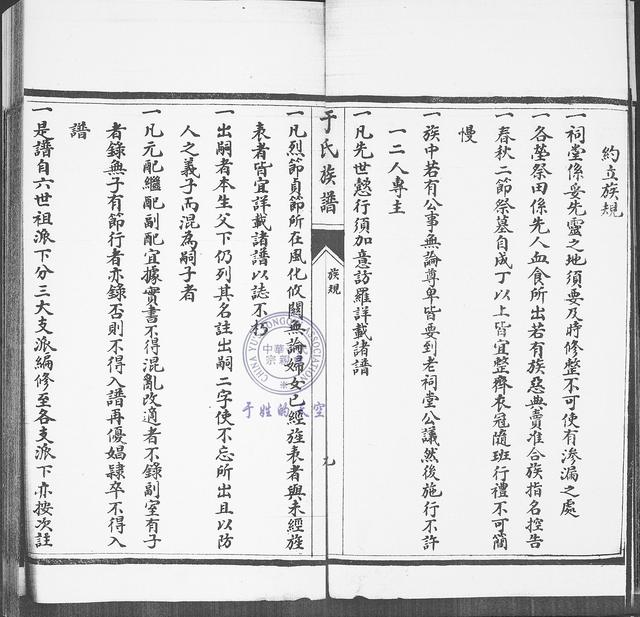 約立族規
一祠堂係妥先靈之地須要及時修整不可使有滲漏之處
一各塋祭田係先人血食所出若有族惡典賣准合族指名控告
一春秋二節祭墓自成丁以上皆宜整齊衣冠隨班行禮不可簡
慢
一族中若有公事無論尊卑皆要到老祠堂公議然後施行不許
一二人專主
一凡先世懿行須加意訪羅詳載諸譜
于氏族譜
族規
一凡烈節貞節所在風化攸關無論婦女已經旌表者與未經旌
表者皆宜詳載諸譜以誌不朽
一出嗣者本生父下仍列其名註出嗣二字使不忘所出且以防
人之義子而混為嗣子者
一凡元配繼配副配宜據實書不得混亂改適者不錄副室有子
者錄無子有節行者亦錄否則不得入譜再優娼隸卒不得入
譜
一是譜自六世祖派下分三大支派編修至各支派下亦按次註
CHINA YU CLONG ASSOCIATION
中華
宗親
于姓的天空